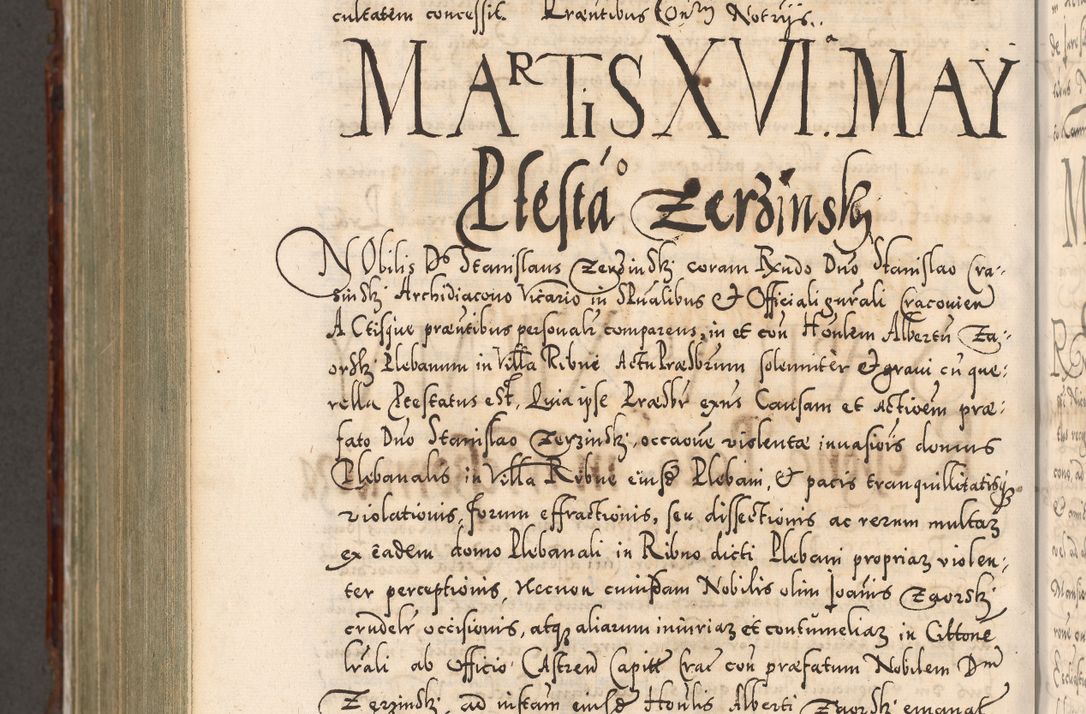 cultatem concessit. Præntibus Eom Notrijs.
MARTIS XVI.ᵃ MAY
Ptesta° Zerzinski
NObilis Ds Stanislaus Zerzinski coram Rndo Dno Stanislao Cra-
sinski Archidiacono Vicario in Sptualibus Et Officiali gnrali Cracovien
ACtisque præntibus personalr comparens, in et con Honlem Albertū Za-
orski Plebanum in Villa Ribne Actu Præsbrum solenniter Et gravi cū que:
rella Ptestatus est, Quia ipse Præsbr exns Causam et Actioem præ:
fato Dno Stanislao Zerzinski, occaone violentæ invasiois domus
Plebanalis in Villa Ribne eiusd Plebani, Et pacis tranquillitatisq
violationis, forum effractionis, seu dissectionis ac rerum multaz
ex eadem domo Plebanali in Ribno dicti Plebani propriaz violen:
ter perceptionis, Necnon cuiusdam Nobilis olim Joanis Zaorski
crudelr occisionis, atq aliarum iniuriaz et contumeliaz in Cittone
lrali ab Officio CAstren Capitt Crac con præfatum Nobilem Dm
Zerzinski ad instam eiusd Honlis Alberti Zaorski emanat